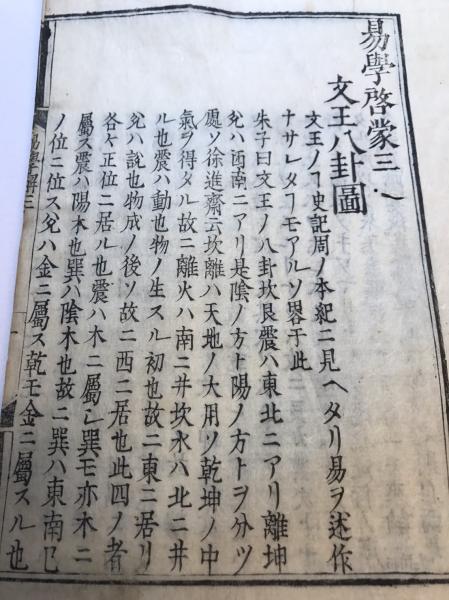 易學啓蒙三
文王八卦圖
文王ノヿ史記周ノ本紀ニ見ヘタリ易ヲ述作
ナサレタヿモアルソ畧于此
朱子曰文王ノ八卦坎艮震ハ東北ニアリ離坤
兌ハ西南ニアリ是陰ノ方ト陽ノ方トヲ分ツ
處ソ徐進齋云坎離ハ天地ノ大用ソ乾坤ノ中
氣ヲ得タル故ニ離火ハ南ニ井坎水ハ北ニ井
ル也震ハ動也物ノ生スル初也故ニ東ニ居リ
兌ハ說也物成ノ後ソ故ニ西ニ居也此四ノ者
各々正位ニ居ル也震ハ木ニ屬シ巽モ亦木ニ
屬ス震ハ陽木也巽ハ陰木也故ニ巽ハ東南巳
ノ位ニ位ス兌ハ金ニ屬ス乾モ金ニ屬スル也